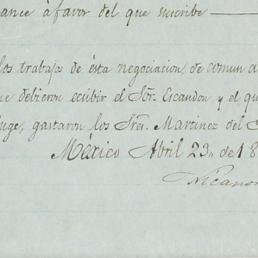 ance à favor del que suscribe
los trabajos de ésta negociacion, de comun a
ue debieron ecsibir el Sr. Escandon y el qu
uge, gastaron los Sres. Martinez del
México Abril 23,, de 18
Nicanor